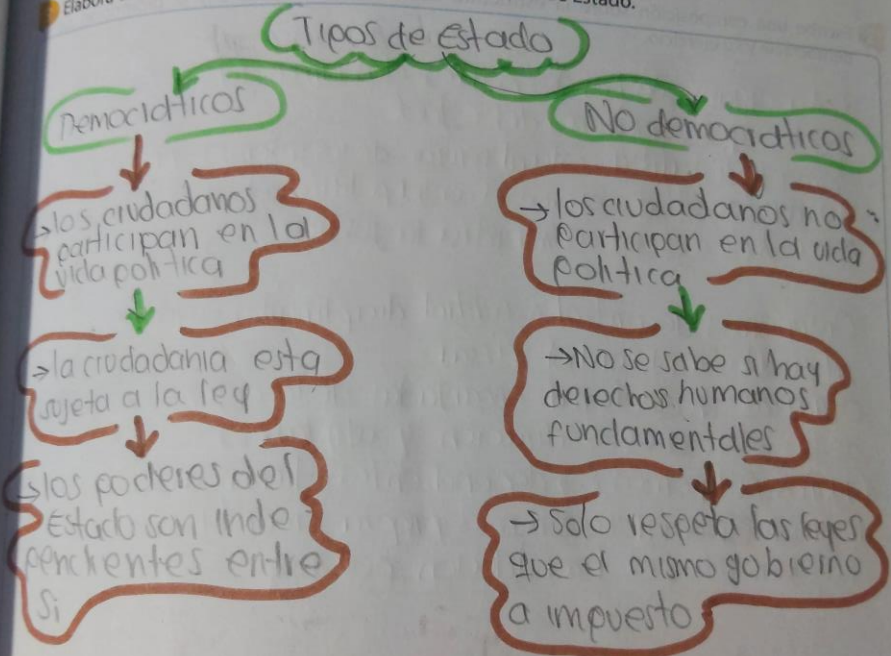 Elabora
Estado.
Tipos de Estado
Democráticos
No democráticos
→los ciudadanos
participan en la
vida politica
→la ciudadania esta
sujeta a la ley
→los poderes del
Estado son inde
pendientes entre
si
→los ciudadanos no
participan en la vida
politica
→No se sabe si hay
derechos humanos
fundamentales
→Solo respeta las leyes
que el mismo gobierno
a impuesto